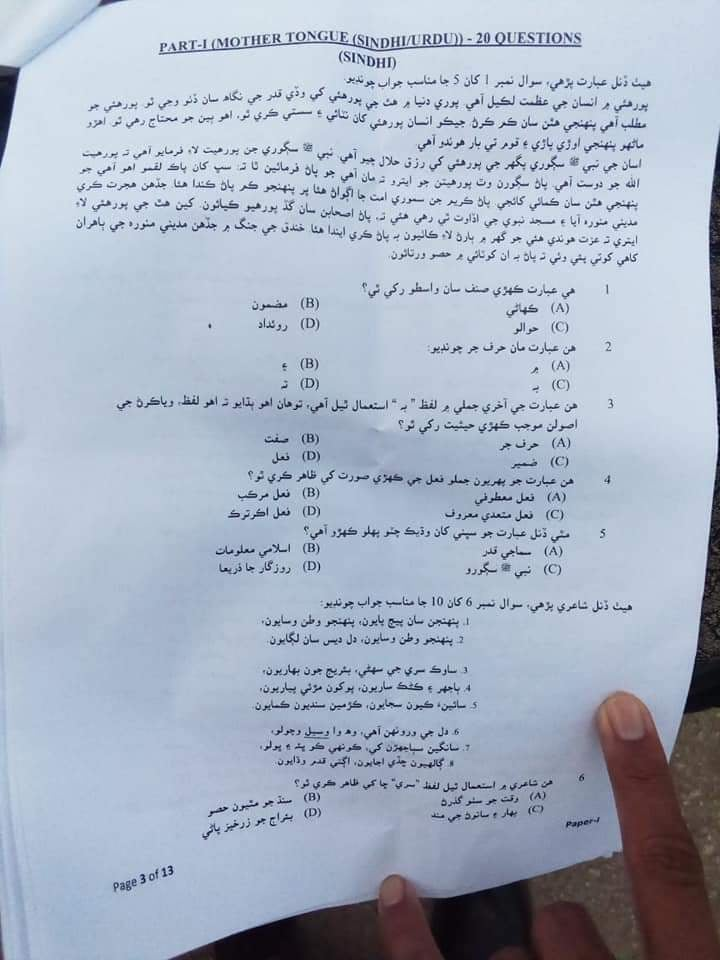 PART-I (MOTHER TONGUE (SINDHI/URDU)) - 20 QUESTIONS
(SINDHI)
هيٺ ڏنل عبارت پڙهي، سوال نمبر 1 کان 5 جا مناسب جواب چونڊيو.
پورهئي ۾ انسان جي عظمت لڪيل آهي. پوري دنيا ۾ هٿ جي پورهئي کي وڏي قدر جي نگاهه سان ڏٺو وڃي ٿو. پورهئي جو
مطلب آهي پنهنجي هٿن سان ڪم ڪرڻ. جيڪو انسان پورهئي کان نٽائي ۽ سستي ڪري ٿو، اهو ٻين جو محتاج رهي ٿو. اهڙو
ماڻهو پنهنجي اوڙي پاڙي ۽ قوم تي بار هوندو آهي.
اسان جي نبي ﷺ سڳوري پگهر جي پورهئي کي رزق حلال چيو آهي. نبي ﷺ سڳوري جن پورهيت لاءِ فرمايو آهي تہ پورهيت
الله جو دوست آهي. پاڻ سڳورن وٽ پورهيتن جو ايترو تہ مان آهي جو پاڻ فرمائين ٿا تہ: سڀ کان پاڪ لقمو اهو آهي جو
پنهنجي هٿن سان ڪمائي کائجي. پاڻ ڪريم جن سموري امت جا اڳواڻ هئا پر پنهنجو ڪم پاڻ ڪندا هئا. جڏهن هجرت ڪري
مديني منوره آيا ۽ مسجد نبوي جي اڏاوت ٿي رهي هئي تہ، پاڻ اصحابن سان گڏ پورهيو ڪيائون. کين هٿ جي پورهئي لاءِ
ايتري تہ عزت هوندي هئي جو گهر ۾ ٻارڻ لاءِ ڪاٺيون بہ پاڻ ڪري ايندا هئا. خندق جي جنگ ۾ جڏهن مديني منوره جي ٻاهران
کاهي کوٽي پئي وئي تہ پاڻ بہ ان کوٽائي ۾ حصو ورتائون.
1 هي عبارت ڪهڙي صنف سان واسطو رکي ٿي؟
(A) ڪهاڻي (B) مضمون
(C) حوالو (D) روئداد
2 هن عبارت مان حرف جر چونڊيو:
(A) ۾ (B) ۽
(C) بہ (D) تہ
3 هن عبارت جي آخري جملي ۾ لفظ " بہ " استعمال ٿيل آهي، توهان اهو ٻڌايو تہ اهو لفظ، وياڪرڻ جي
اصولن موجب ڪهڙي حيثيت رکي ٿو؟
(A) حرف جر (B) صفت
(C) ضمير (D) فعل
4 هن عبارت جو پهريون جملو فعل جي ڪهڙي صورت کي ظاهر ڪري ٿو؟
(A) فعل معطوفي (B) فعل مرڪب
(C) فعل متعدي معروف (D) فعل اڪرترڪ
5 مٿي ڏنل عبارت جو سڀني کان وڌيڪ چٽو پهلو ڪهڙو آهي؟
(A) سماجي قدر (B) اسلامي معلومات
(C) نبي ﷺ سڳورو (D) روزگار جا ذريعا
هيٺ ڏنل شاعري پڙهي، سوال نمبر 6 کان 10 جا مناسب جواب چونڊيو:
1. پنهنجن سان پيچ پايون، پنهنجو وطن وسايون،
2. پنهنجو وطن وسايون، دل ديس سان لڳايون.
3. ساوڪ سري جي سهڻي، بئريج جون بهاريون،
4. ٻاجهر ۽ ڪڻڪ ساريون، پوکون مڙئي پياريون،
5. سائينءَ ڪيون سجايون، ڪڙمين سنديون ڪمايون.
6. دل جي ورونهن آهي، وهہ وا وسيل وچولو،
7. سانگين سٻاجهڙن کي، ڪونهي ڪو ڀؤ ۽ ڀولو،
8. ڳالهيون ڇڏي اجايون، اڳتي قدم وڌايون.
6 هن شاعري ۾ استعمال ٿيل لفظ "سري" ڇا کي ظاهر ڪري ٿو؟
(A) وقت جو سٺو گذرڻ (B) سنڌ جو مٿيون حصو
(C) بهار ۽ سانوڻ جي مند (D) بئراج جو زرخيز پاڻي
Paper-I
Page 3 of 13